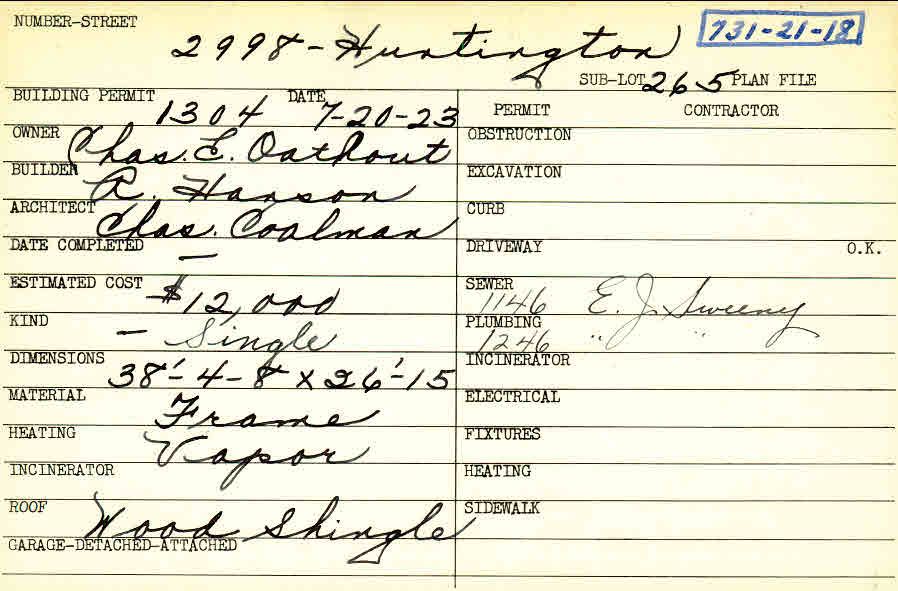 NUMBER-STREET 2998 - Huntington 731-21-18
SUB-LOT 265 PLAN FILE
BUILDING PERMIT 1304 DATE 7-20-23
PERMIT CONTRACTOR
OWNER Chas. E. Oathout
OBSTRUCTION
BUILDER R. Hanson
EXCAVATION
ARCHITECT Chas. Coalman
CURB
DATE COMPLETED —
DRIVEWAY O.K.
ESTIMATED COST $12,000
SEWER 1146 E. J. Sweeny
KIND — Single
PLUMBING 1246 " "
DIMENSIONS 38'-4-8 x 26'-15
INCINERATOR
MATERIAL Frame
ELECTRICAL
HEATING Vapor
FIXTURES
INCINERATOR
HEATING
ROOF Wood Shingle
SIDEWALK
GARAGE-DETACHED-ATTACHED